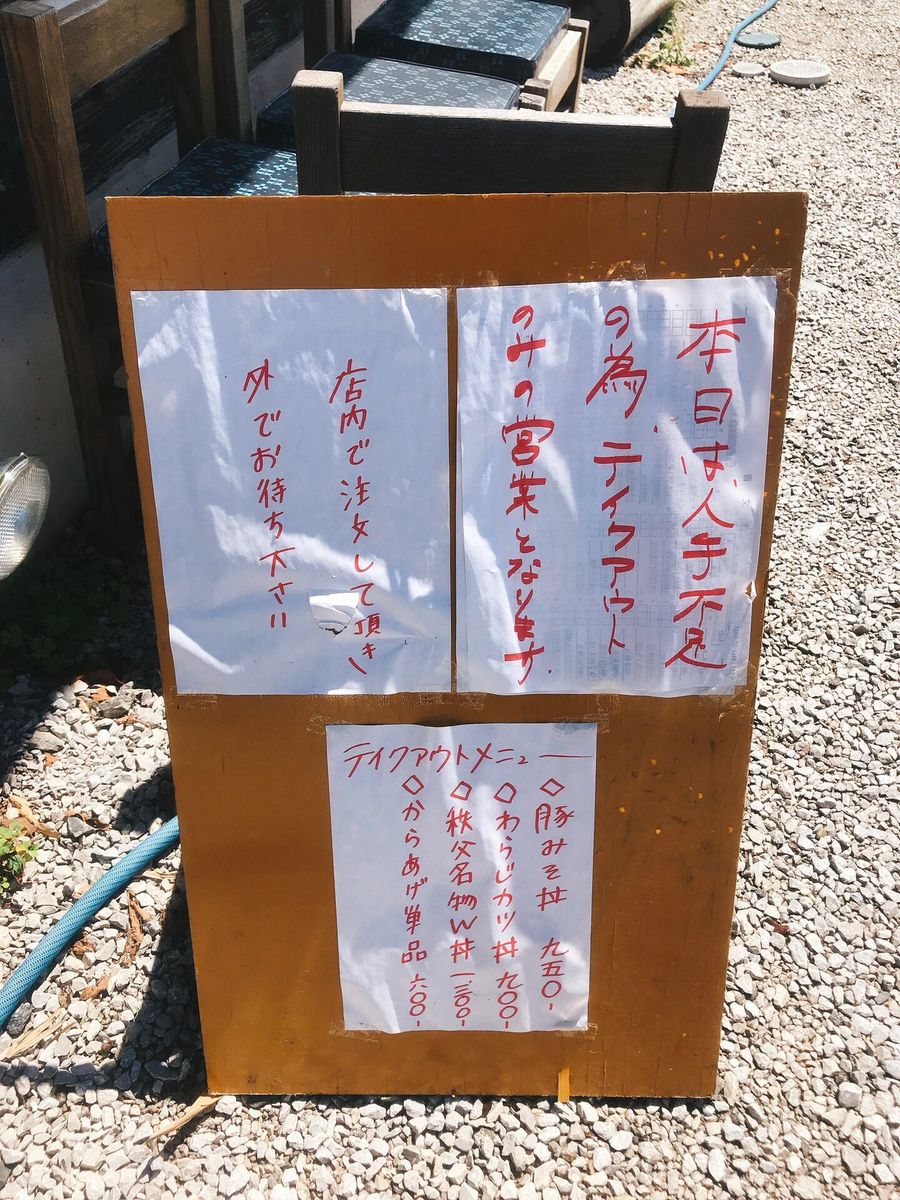 本日は、人手不足
の為、テイクアウト
のみの営業となります.
店内で注文して頂き、
外でお待ち下さい
テイクアウトメニュー
◇豚みそ丼 九五〇-
◇わらじカツ丼 九〇〇-
◇秩父名物W丼 一三〇〇-
◇からあげ単品 六〇〇-